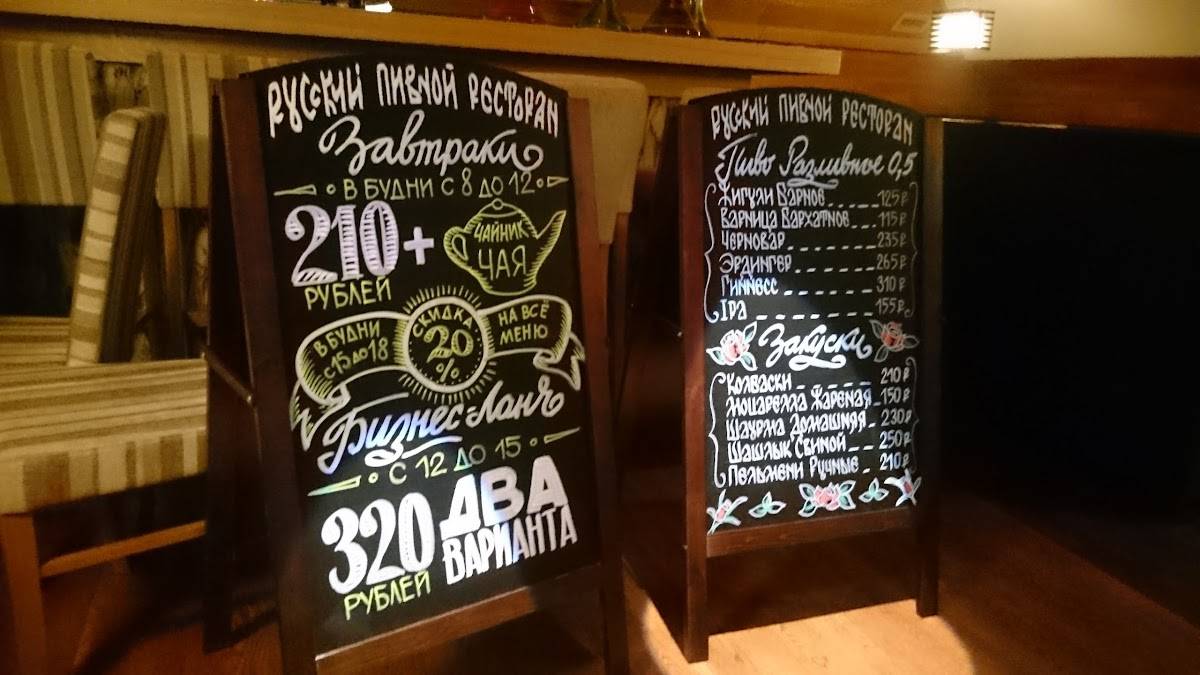 Русский Пивной Ресторан
Завтраки
в будни с 8 до 12
210 +
рублей
чайник
чая
в будни
с 15 до 18
скидка
20
%
на всё
меню
Бизнес-Ланч
с 12 до 15
320
рублей
два
варианта
Русский Пивной Ресторан
Пиво Разливное 0,5
Жигули Барное 125 ₽
Варница Бархатное 115 ₽
Черновар 235 ₽
Эрдингер 265 ₽
Гиннесс 310 ₽
Ipa 155 ₽
Закуски
Колбаски 210 ₽
Моцарелла Жареная 150 ₽
Шаурма Домашняя 230 ₽
Шашлык Свиной 250 ₽
Пельмени Ручные 210 ₽